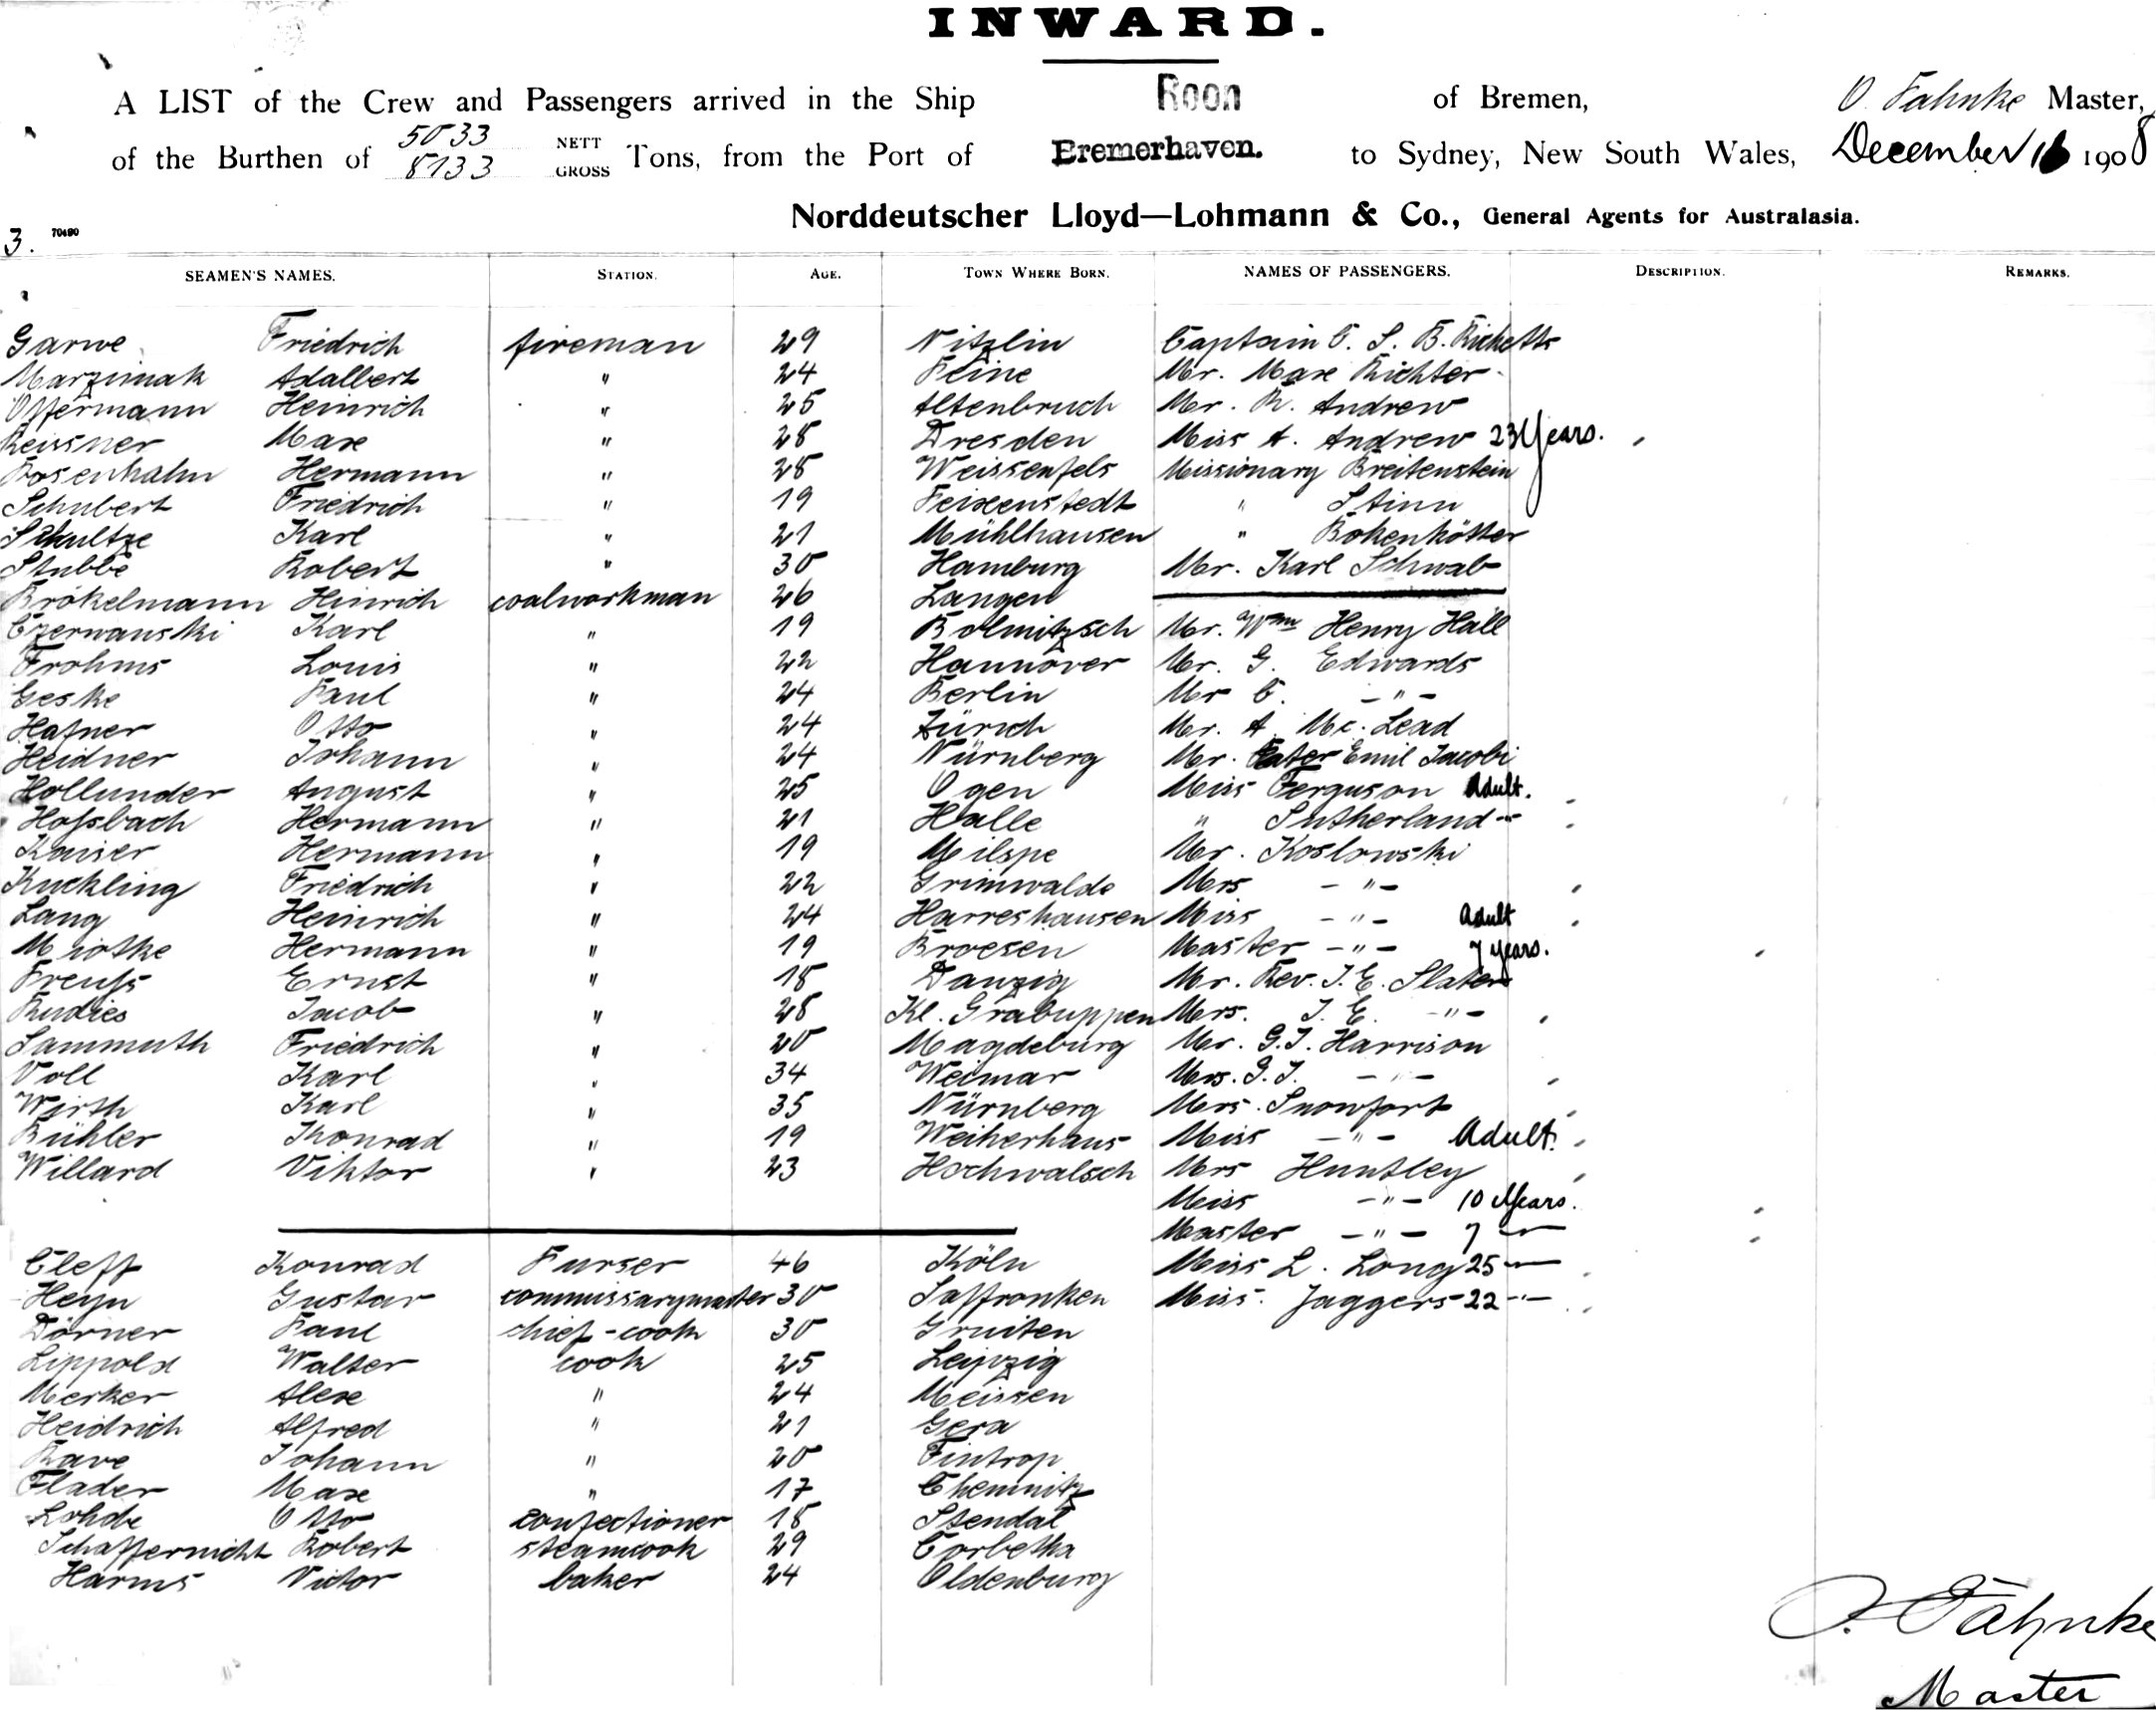 INWARD.
A LIST of the Crew and Passengers arrived in the Ship Roon of Bremen, O. Fahnke Master,
of the Burthen of 5033 NETT 8133 GROSS Tons, from the Port of Bremerhaven. to Sydney, New South Wales, December 16 1908
Norddeutscher Lloyd—Lohmann & Co., General Agents for Australasia.
3. 70490
SEAMEN'S NAMES. STATION. AGE. TOWN WHERE BORN. NAMES OF PASSENGERS. DESCRIPTION. REMARKS.
Garwe Friedrich fireman 29 Nitzlin Captain C. S. B. Ricketts
Marzimak Adalbert " 24 Peine Mr. Max Richter
Offermann Heinrich " 25 Altenbruch Mr. R. Andrew
Reissner Max " 28 Dresden Miss A. Andrew 23 Years.
Rosenhahn Hermann " 28 Weissenfels Missionary Breitenstein
Schubert Friedrich " 19 " Stinn
Schultze Karl " 21 Mühlhausen " Bokenkötter
Stubbe Robert " 30 Hamburg Mr. Karl Schwab
Brökelmann Hinrich coalworkman 26 Langen
Czerwanski Karl " 19 Bolmitzsch Mr. Wm Henry Hall
Frohms Louis " 22 Hannover Mr. G. Edwards
Geske Paul " 24 Berlin Mr C. - " -
Hafner Otto " 24 Zürich Mr. A. Mc. Lead
Heidner Johann " 24 Nürnberg Mr. Pater Emil Jacobi
Hollunder August " 25 Ogen Miss Ferguson Adult.
Hofsbach Hermann " 21 Halle " Sutherland "
Kaiser Hermann " 19 Milspe Mr. Koslowski
Kuckling Friedrich " 22 Grimwalde Mrs - " -
Lang Heinrich " 24 Harreshausen Miss - " - Adult
Miotke Hermann " 19 Broesen Master - " - 7 years.
Preuß Ernst " 18 Danzig Mr. Rev. T. E. Slater
Rudies Jacob " 28 Kl. Grabuppen Mrs. T. E. - " -
Sammuth Friedrich " 20 Magdeburg Mr. G. T. Harrison
Voll Karl " 34 Weimar Mrs. G. T. - " -
Wirth Karl " 35 Nürnberg Mrs. Snowfort
Bühler Konrad " 19 Weiherhaus Miss - " - Adult.
Willard Viktor " 23 Hochwalsch Mrs Huntley
Miss - " - 10 Years.
Master - " - 7 "
Cleff Konrad Purser 46 Köln Miss L. Long 25 "
Heyn Gustav commissarymaster 30 Saffronken Miss. Jaggers 22 - " -
Dörner Paul chief-cook 30 Gruiten
Lippold Walter cook 25 Leipzig
Merker Alex " 24 Meissen
Heidrich Alfred " 21 Gera
Rave Johann " 20 Fintrop
Flader Max " 17 Chemnitz
Lohde Otto confectioner 18 Stendal
Schaffernicht Robert steamcook 29 Corbetha
Harms Victor baker 24 Oldenburg
O. Fahnke
Master